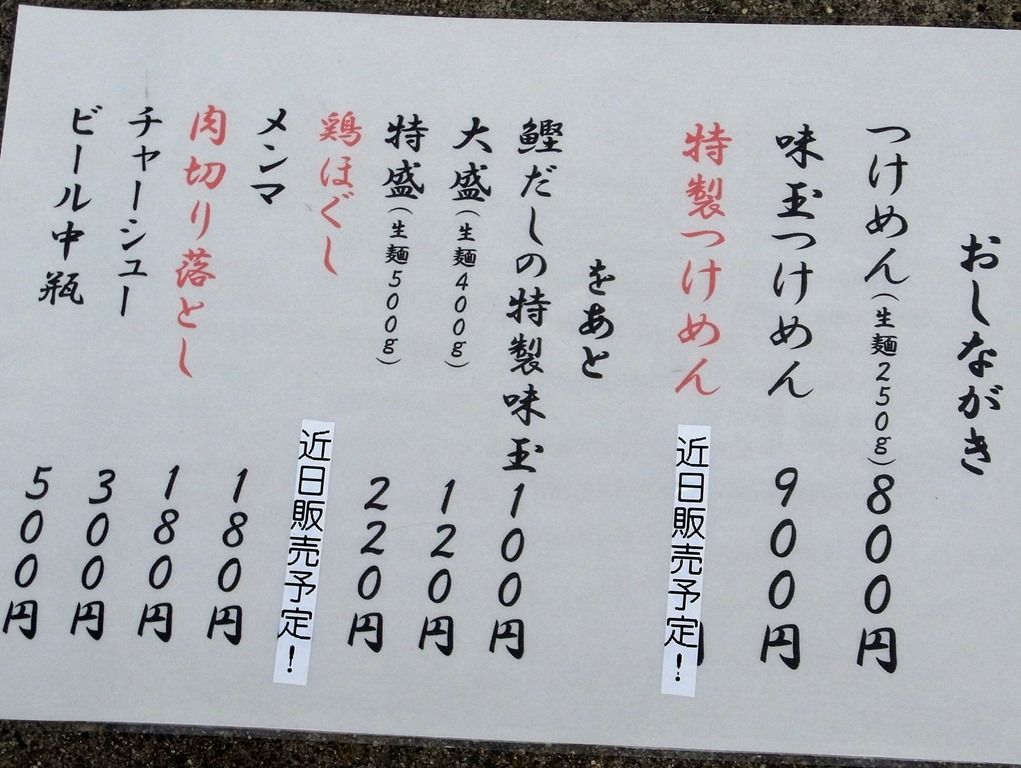 おしながき
つけめん(生麺250g)800円
味玉つけめん 900円
特製つけめん 近日販売予定!
をあと
鰹だしの特製味玉100円
大盛(生麺400g) 120円
特盛(生麺500g) 220円
鶏ほぐし 近日販売予定!
メンマ 180円
肉切り落とし 180円
チャーシュー 300円
ビール中瓶 500円